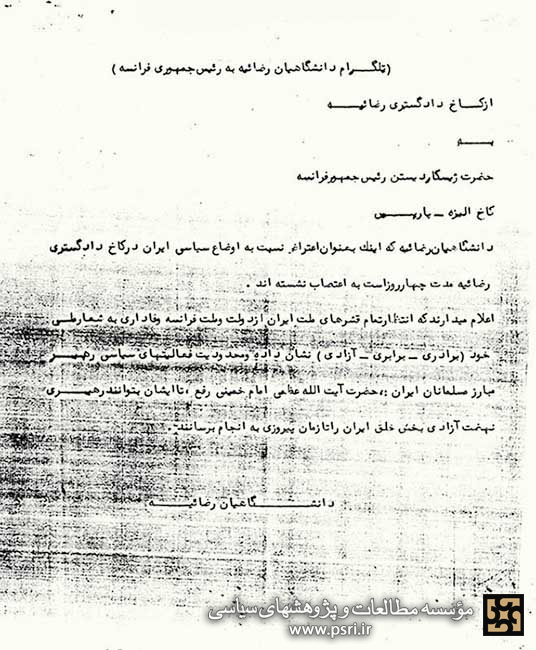 (تلگرام دانشگاهیان رضائیه به رئیس جمهوری فرانسه)
از کاخ دادگستری رضائیه
به
حضرت ژیسکاردیستن رئیس جمهور فرانسه
کاخ الیزه - پاریس
دانشگاهیان رضائیه که اینک بعنوان اعتراض نسبت به اوضاع سیاسی ایران در کاخ دادگستری
رضائیه مدت چهار روز است به اعتصاب نشسته اند .
اعلام میدارند که انتظار تمام قشرهای ملت ایران از دولت و ملت فرانسه وفاداری به شعار ملی
خود (برادری - برابری - آزادی) نشان داده و محدودیت فعالیتهای سیاسی رهبر
مبارز مسلمانان ایران ،، حضرت آیت الله عظمی امام خمینی رفع ، تا ایشان بتوانند رهبری
نهضت آزادی بخش خلق ایران را تا زمان پیروزی به انجام برسانند .
دانشگاهیان رضائیه
مؤسسه مطالعات و پژوهشهای سیاسی
www.psri.ir